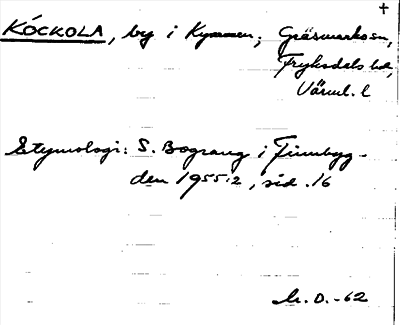 KÓCKOLA, by i Kymmen; Gräsmarks sn,
Fryksdals hd,
Värml. l
Etymologi: S. Bograng i Finnbyg-
den 1955:2, sid. 16
-62